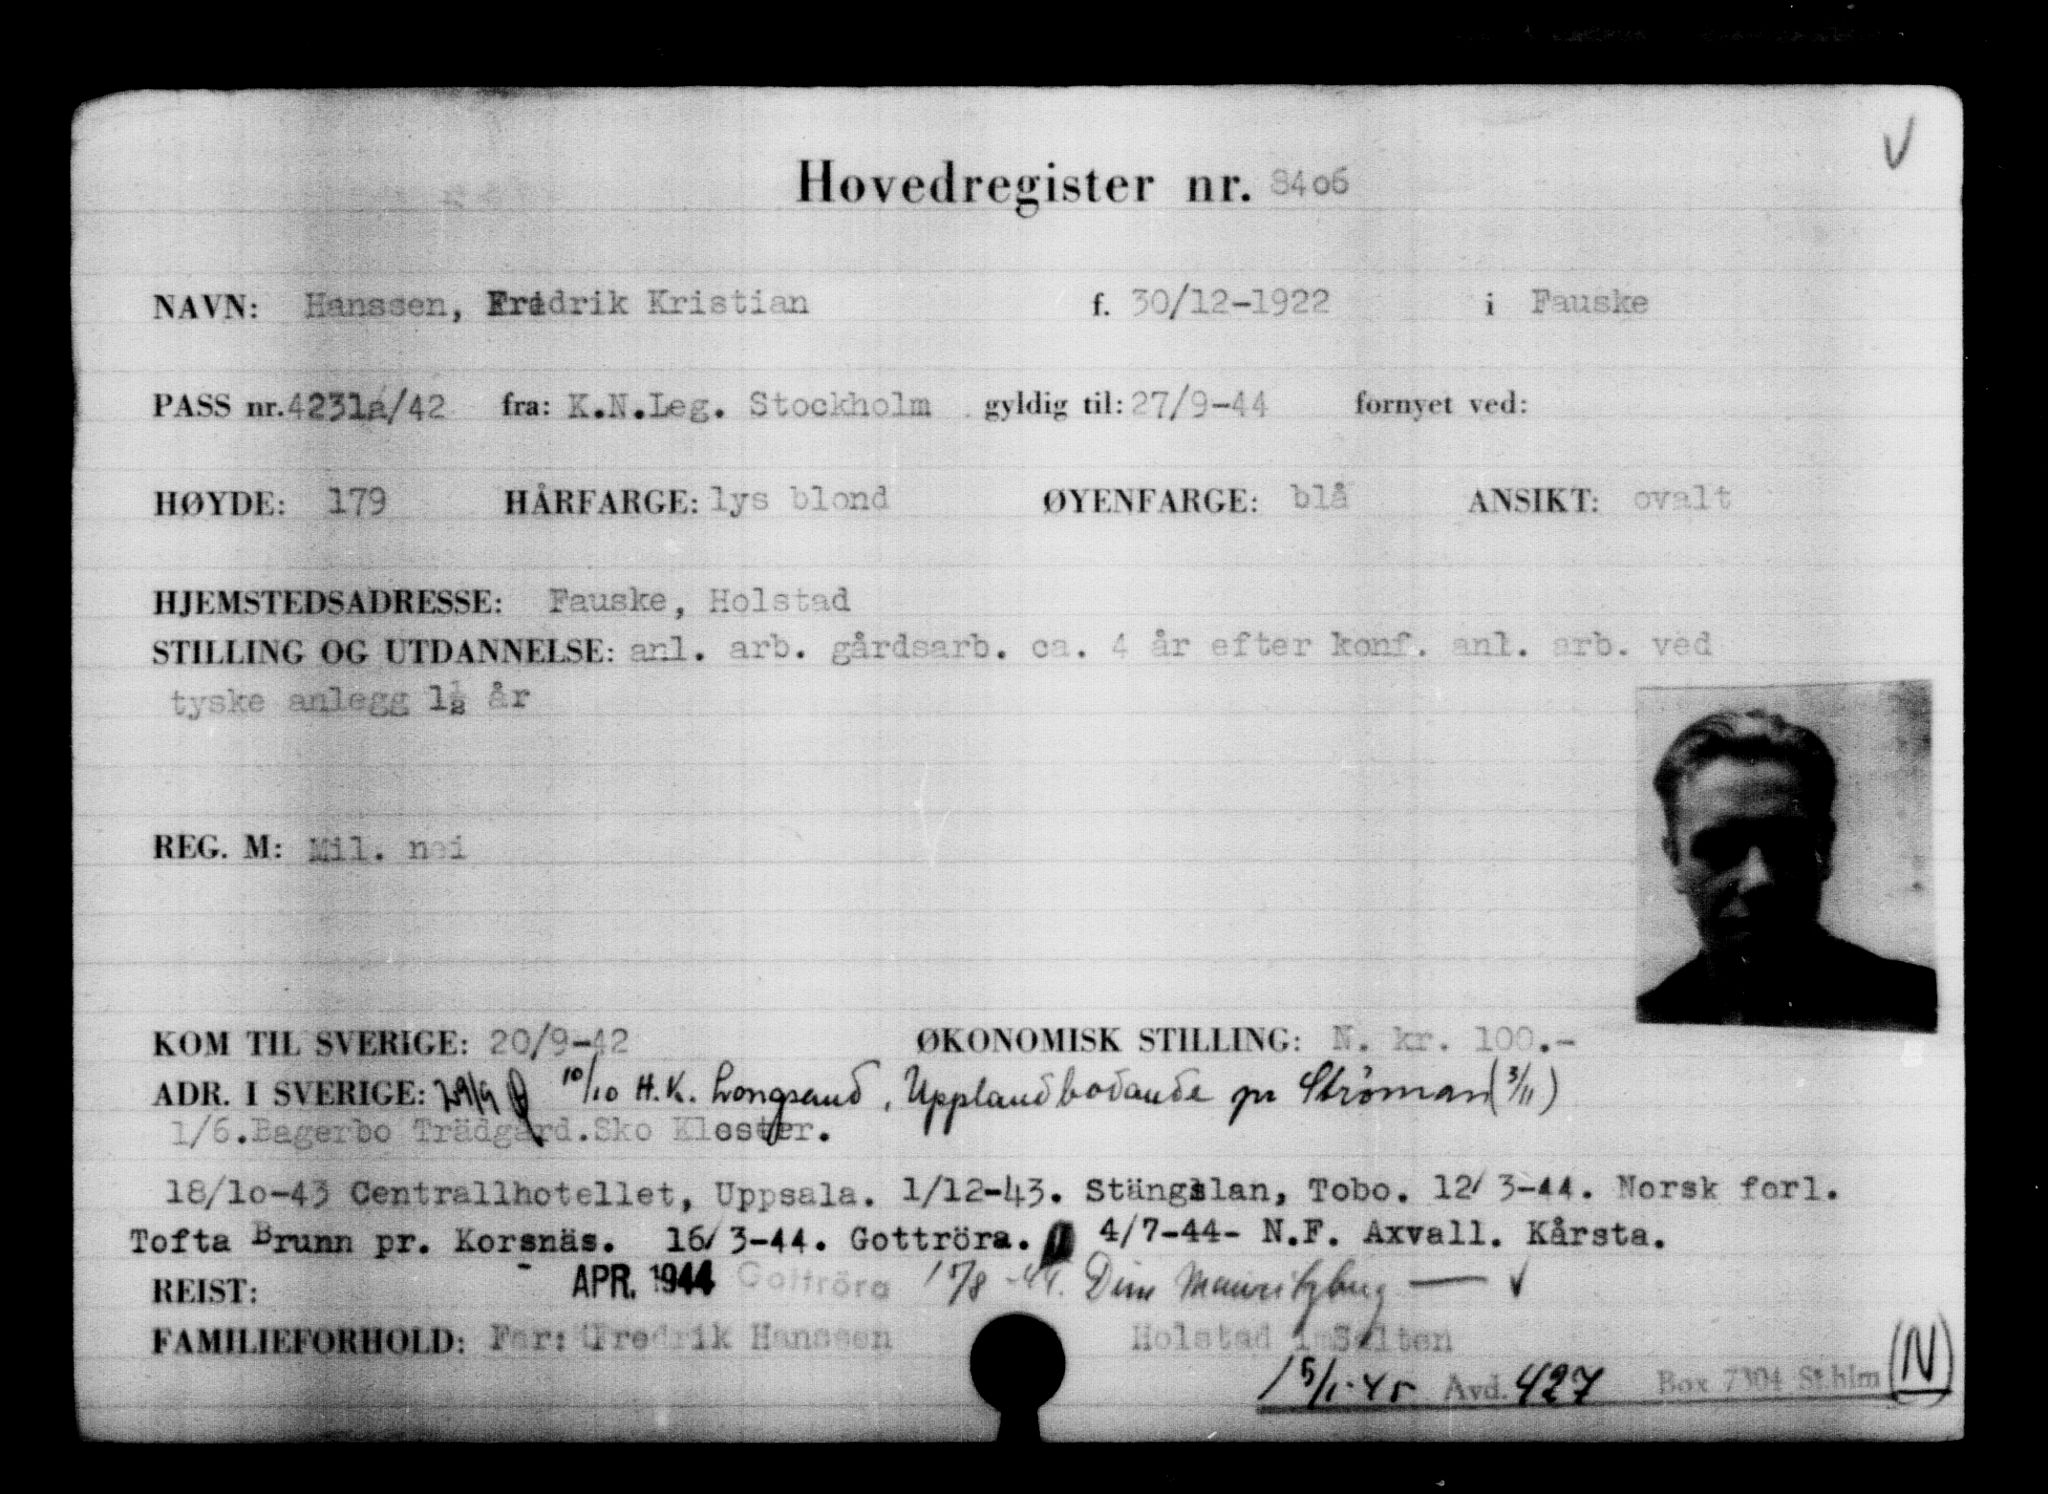 Hovedregister nr. 8406
NAVN: Hanssen, Fredrik Kristian f. 30/12-1922 i Fauske
PASS nr. 4231a/42 fra: K.N.Leg. Stockholm gyldig til: 27/9-44 fornyet ved:
HØYDE: 179 HÅRFARGE: lys blond ØYENFARGE: blå ANSIKT: ovalt
HJEMSTEDSADRESSE: Fauske, Holstad
STILLING OG UTDANNELSE: anl. arb. gårdsarb. ca. 4 år efter konf. anl. arb. ved
tyske anlegg 1½ år
REG. M: Mil. nei
KOM TIL SVERIGE: 20/9-42 ØKONOMISK STILLING: N. kr. 100.-
ADR. I SVERIGE: 29/9 10/10 H.K. Longsand, Upplandbodande pr Ströman (3/11)
1/6. Bagerbo Trädgård. Sko Kloster.
18/10-43 Centrallhotellet, Uppsala. 1/12-43. Stängslan, Tobo. 12/3-44. Norsk forl.
Tofta Brunn pr. Korsnäs. 16/3-44. Gottröra. 4/7-44- N.F. Axvall. Kårsta.
REIST: - APR. 1944 Gottröra 15/8-44. Dim Mauritzberg — √
FAMILIEFORHOLD: Far: Fredrik Hanssen Holstad i Salten
15/1-45 Avd. 427 Box 7304 St.hlm (N)